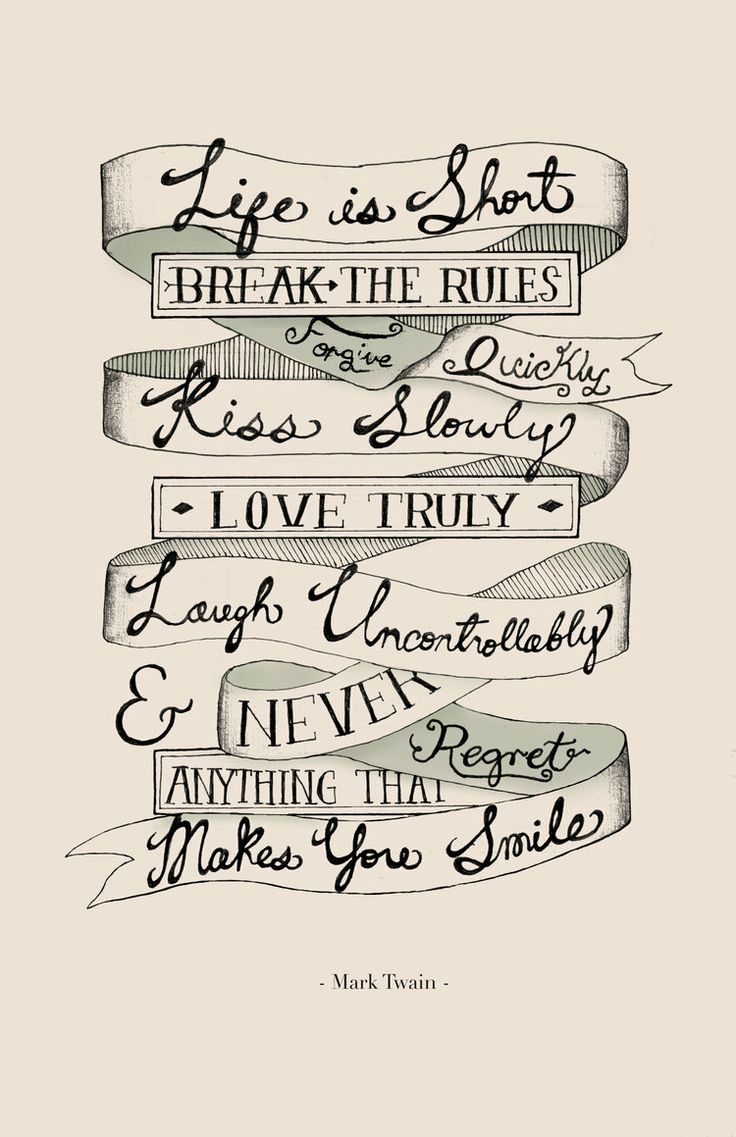 Life is Short
BREAK THE RULES
Forgive Quickly
Kiss Slowly
LOVE TRULY
Laugh Uncontrollably
& NEVER
Regret
ANYTHING THAT
Makes You Smile
- Mark Twain -